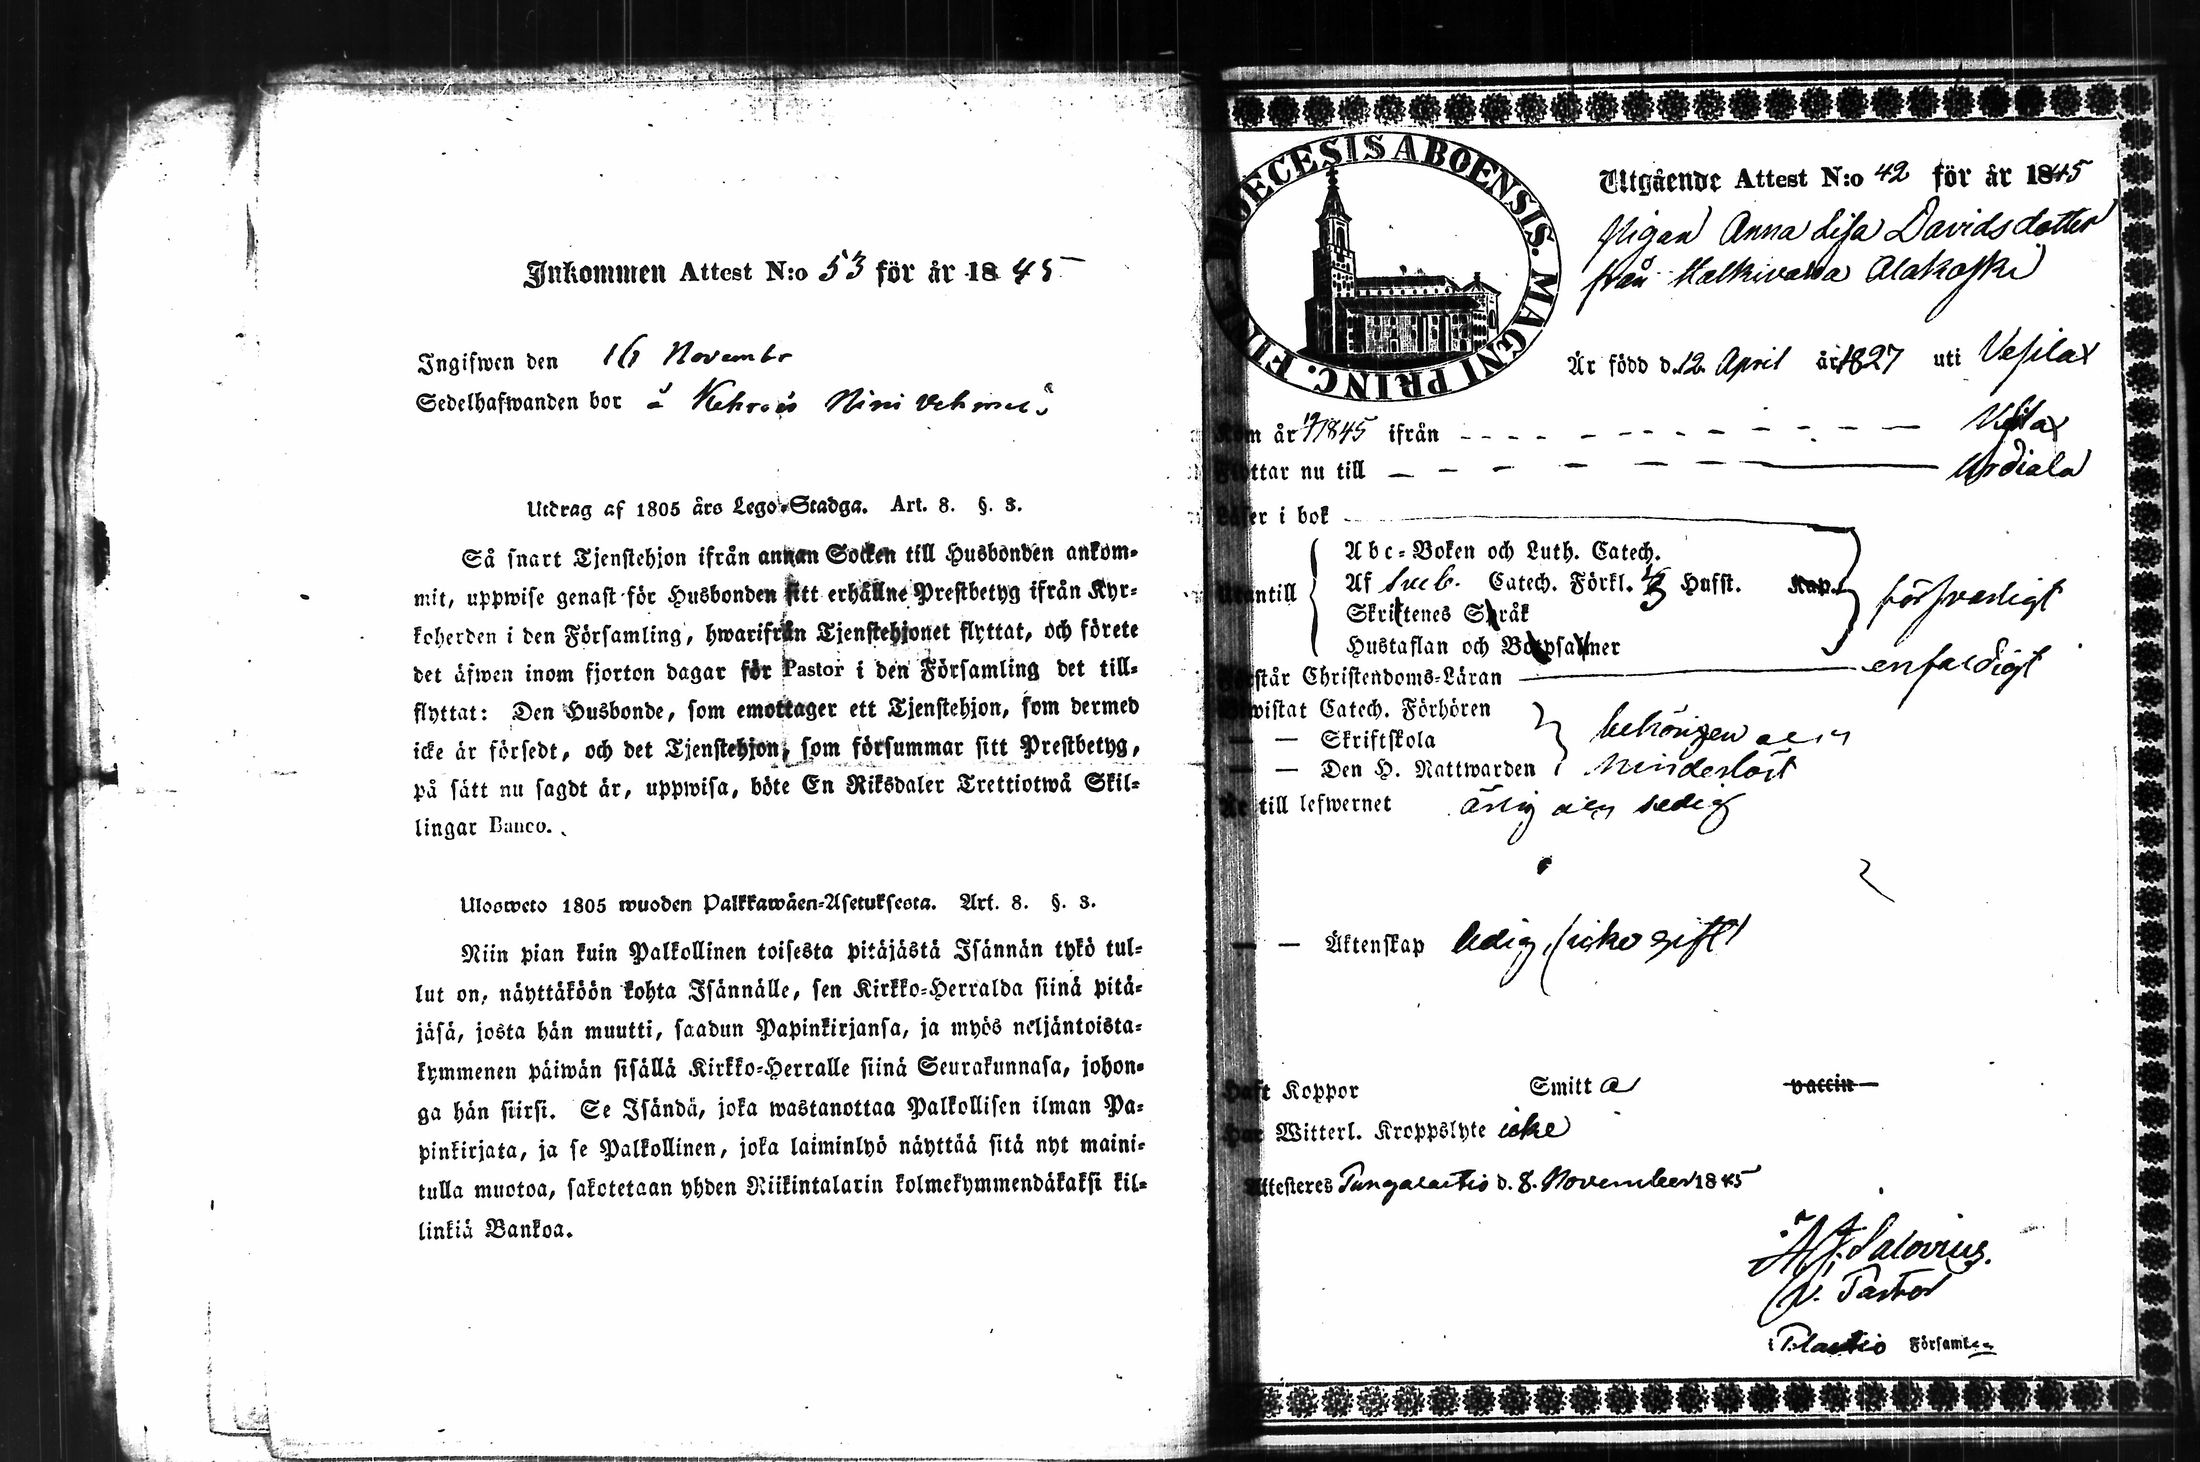 Inkommen Attest N:o 53 för år 1845
Ingifwen den 16 Novembr
Sedelhafwanden bor å
Utdrag af 1805 års Lego-Stadga. Art. 8. §. 3.
Så snart Tjenstehjon ifrån annan Socken till Husbonden ankom-
mit, uppwise genast för Husbonden sitt erhållne Prestbetyg ifrån Kyr-
koherden i den Församling, hwarifrån Tjenstehjonet flyttat, och förete
det äfwen inom fjorton dagar för Pastor i den Församling det till-
flyttat: Den Husbonde, som emottager ett Tjenstehjon, som dermed
icke är försedt, och det Tjenstehjon, som försummar sitt Prestbetyg,
på sätt nu sagdt är, uppwisa, böte En Riksdaler Trettiotwå Skil-
lingar Banco.
Ulosweto 1805 wuoden Palkkawäen-Asetuksesta. Art. 8. §. 3.
Niin pian kuin Palkollinen toisesta pitäjästä Isännän tykö tul-
lut on, näyttäköön kohta Isännälle, sen Kirkko-Herralda siinä pitä-
jäsä, josta hän muutti, saadun Papinkirjansa, ja myös neljäntoista-
kymmenen päiwän sisällä Kirkko-Herralle siinä Seurakunnasa, johon-
ga hän siirsi. Se Isändä, joka wastanottaa Palkollisen ilman Pa-
pinkirjata, ja se Palkollinen, joka laiminlyö näyttää sitä nyt maini-
tulla muotoa, sakotetaan yhden Riikintalarin kolmekymmendäkaksi kil-
linkiä Bankoa.
DIOECESIS ABOENSIS. MAGNI PRINC. FINL.
Utgående Attest N:o 42 för år 1845
Pigan Anna Lisa Davidsdotter
från Halkivaha Alakoski
Är född d. 12 April år 1827 uti Vesilax
Kom år 1845 ifrån Vesilax
Flyttar nu till Urdiala
Läser i bok
Utantill
Abc-Boken och Luth. Catech.
Af Sveb. Catech. Förkl. 1/3 Hufst. Kap. försvarligt
Skriftenes Språk
Hustaflan och Botpsalmer
Förstår Christendoms-Läran enfaldigt
Bewistat Catech. Förhören
— — Skriftskola behörigen och
— — Den H. Nattwarden hinderlöst
Är till lefwernet ärlig och sedig
— — Äktenskap ledig, icke gift
Haft Koppor Smitt a vaccin
Har Witterl. Kroppslyte icke
Attesteres Tungalastio d. 8. November 1845
Salovius.
v. Pastor
i Församl